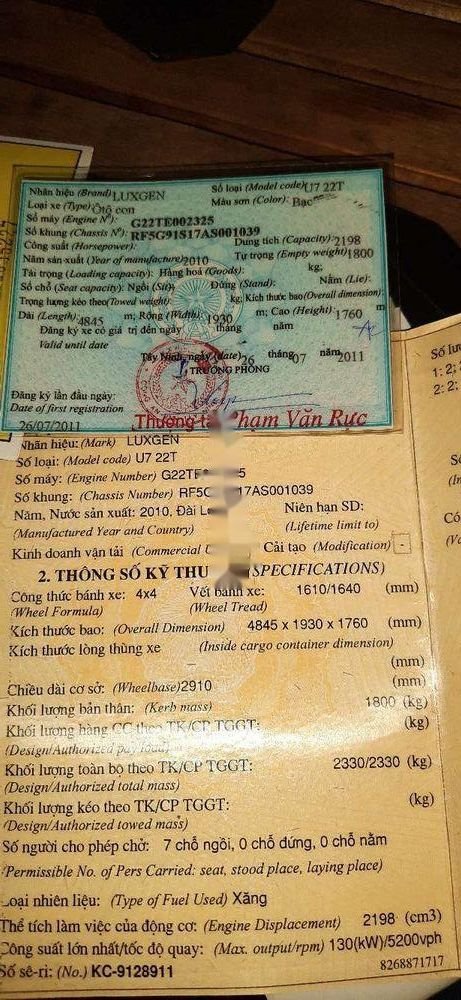 Nhãn hiệu (Brand) LUXGEN Số loại (Model code) U7 22T
Loại xe (Type) Ôtô con Màu sơn (Color): Bạc
Số máy (Engine N°): G22TE002325
Số khung (Chassis N°) RF5G91S17AS001039
Công suất (Horsepower): Dung tích (Capacity): 2198
Năm sản xuất (Year of manufacture) 2010 Tự trọng (Empty weight) 1800
Tải trọng (Loading capacity): Hàng hoá (Goods): kg;
Số chỗ (Seat capacity): Ngồi (Sit) Đứng (Stand): Nằm (Lie):
Trọng lượng kéo theo (Towed weight): kg; Kích thước bao (Overall dimension)
Dài (Length): 4845 m; Rộng (Width): 1930 m; Cao (Height): 1760 m
Đăng ký xe có giá trị đến ngày tháng năm
Valid until date
Tây Ninh, ngày (date) 26 tháng 07 năm 2011
TRƯỞNG PHÒNG
Đăng ký lần đầu ngày:
Date of first registration
26/07/2011 Thượng tá Phạm Văn Rực
Nhãn hiệu: (Mark) LUXGEN
Số loại: (Model code) U7 22T
Số máy: (Engine Number) G22TE
Số khung: (Chassis Number) RF5G 17AS001039
Năm, Nước sản xuất: 2010, Đài Niên hạn SD:
(Manufactured Year and Country) (Lifetime limit to)
Kinh doanh vận tải (Commercial Cải tạo (Modification) -
2. THÔNG SỐ KỸ THU SPECIFICATIONS)
Công thức bánh xe: 4x4 Vết bánh xe: 1610/1640 (mm)
(Wheel Formula) (Wheel Tread)
Kích thước bao: (Overall Dimension) 4845 x 1930 x 1760 (mm)
Kích thước lòng thùng xe (Inside cargo container dimension)
(mm)
Chiều dài cơ sở: (Wheelbase) 2910 (mm)
Khối lượng bản thân: (Kerb mass) 1800 (kg)
Khối lượng hàng CC theo TK/CP TGGT: (kg)
(Design/Authorized pay load)
Khối lượng toàn bộ theo TK/CP TGGT: 2330/2330 (kg)
(Design/Authorized total mass)
Khối lượng kéo theo TK/CP TGGT: (kg)
(Design/Authorized towed mass)
Số người cho phép chở: 7 chỗ ngồi, 0 chỗ đứng, 0 chỗ nằm
(Permissible No. of Pers Carried: seat, stood place, laying place)
Loại nhiên liệu: (Type of Fuel Used) Xăng
Thể tích làm việc của động cơ: (Engine Displacement) 2198 (cm3)
Công suất lớn nhất/tốc độ quay: (Max. output/rpm) 130(kW)/5200vph
Số sê-ri: (No.) KC-9128911 8268871717
Số lư
1: 2;
2: 2;